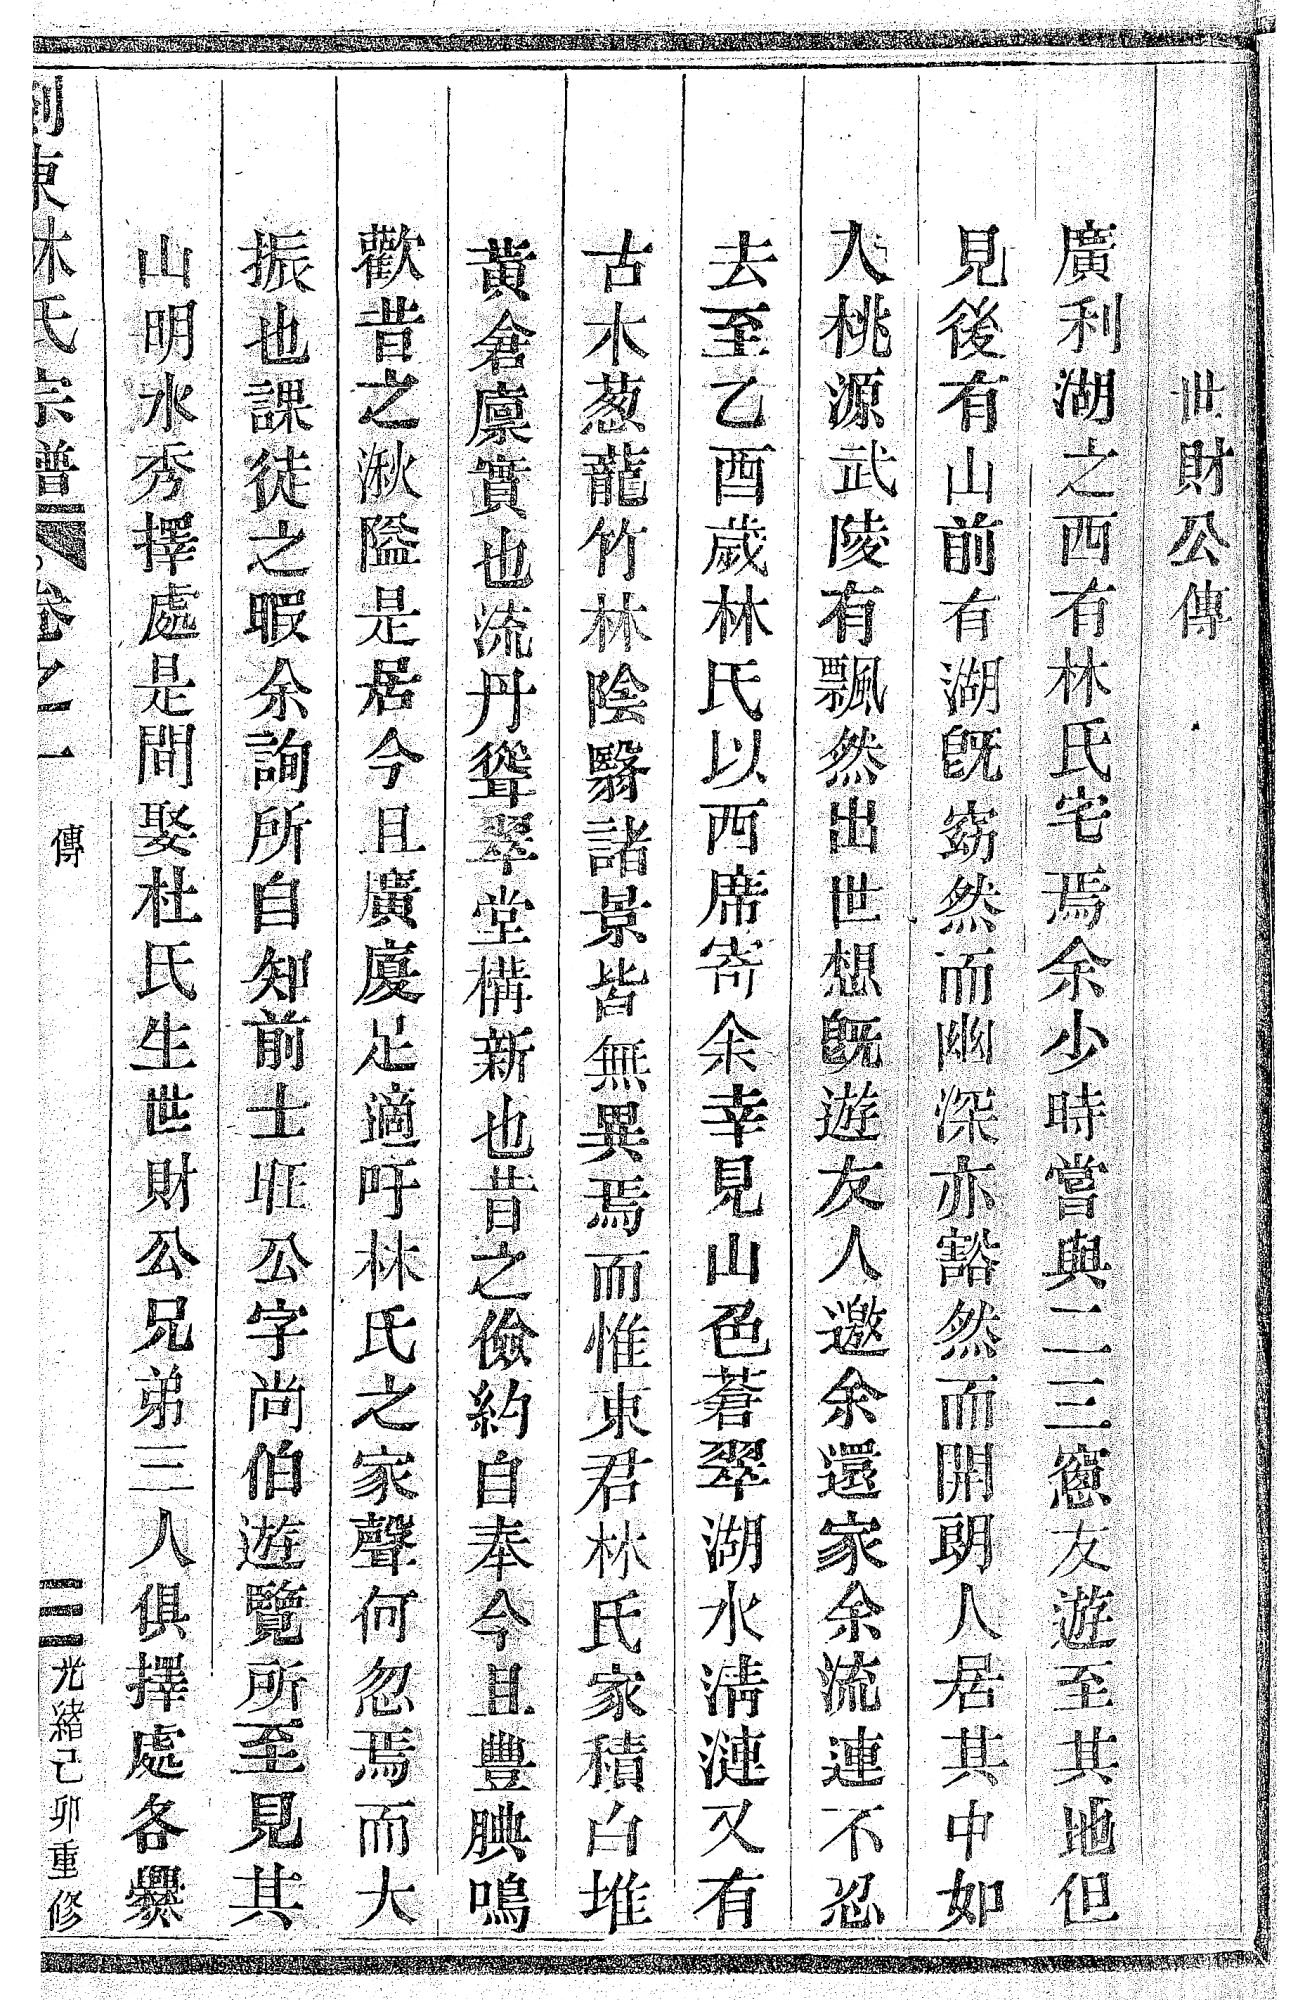 世財公傳
廣利湖之西有林氏宅焉余少時嘗與二三窓友遊至其地但
見後有山前有湖旣窈然而幽深亦豁然而開朗人居其中如
入桃源武陵有飄然出世想旣遊友人邀余還家余流連不忍
去至乙酉歲林氏以西席寄余幸見山色蒼翠湖水淸漣又有
古木葱蘢竹林陰翳諸景皆無異焉而惟東君林氏家積白堆
黃倉廪實也流丹聳翠堂構新也昔之儉約自奉今且豐腆鳴
歡昔之湫隘是居今且廣廈足適吁林氏之家聲何忽焉而大
振也課徒之暇余詢所自知前士班公字尚伯遊覽所至見其
山明水秀擇處是間娶杜氏生世財公兄弟三人俱擇處各爨
東林氏宗譜 卷之一 傳 三 光緒己卯重修